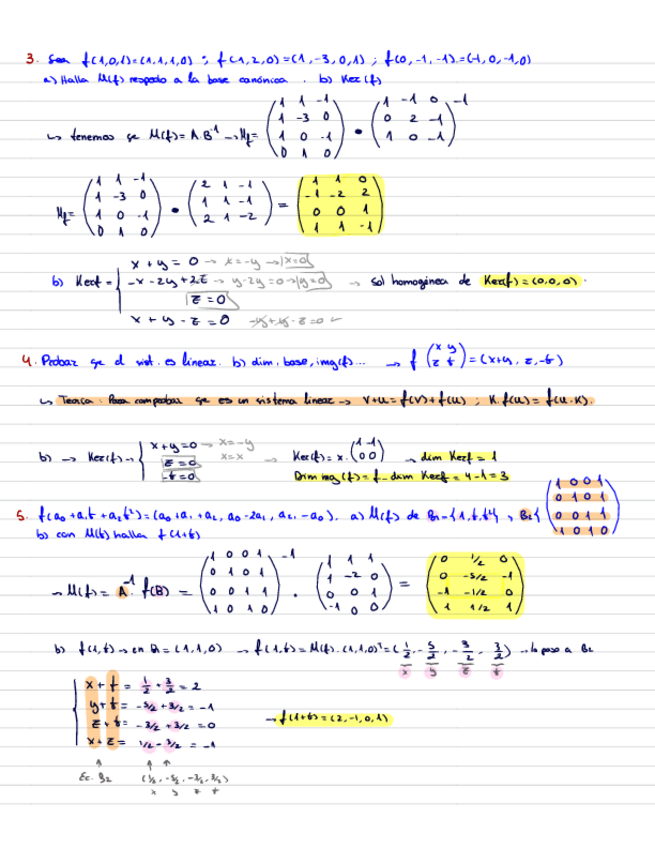 3. Sea f(1,0,1)=(1,1,1,0) ; f(1,2,0)=(1,-3,0,1) ; f(0,-1,-1)=(-1,0,-1,0)
a) Halla M(f) respecto a la base canónica. b) Ker(f)
↳ tenemos qe M(f)= A·B⁻¹ → Mf= (1 1 -1 / 1 -3 0 / 1 0 -1 / 0 1 0) · (1 -1 0 / 0 2 -1 / 1 0 -1)⁻¹
Mf= (1 1 -1 / 1 -3 0 / 1 0 -1 / 0 1 0) · (2 1 -1 / 1 1 -1 / 2 1 -2) = (1 1 0 / -1 -2 2 / 0 0 1 / 1 1 -1)
x + y = 0 → x=-y → x=0
b) Kerf = -x -2y +2z → y-2y=0 → y=0 → sol homogénea de Ker(f)=(0,0,0).
z=0
x + y - z = 0 -y+y-z=0
4. Probar qe el sist. es linear. b) dim, base, img(f)... → f (x y / z t) = (x+y, z, -t)
↳ Teoría: Para comprobar qe es un sistema linear → v+u = f(v)+f(u) ; K·f(u) = f(u·K).
b) → Ker(f) → x+y=0 → x=-y
z=0 x=x → Ker(f)= x·(1 -1 / 0 0) → dim Kerf = 1
-t=0 Dim img(f)= f - dim Kerf = 4-1=3
5. f(a₀+a₁t+a₂t²)=(a₀+a₁+a₂, a₀-2a₁, a₂, -a₀). a) M(f) de B₁={1,t,t²}, B₂{ (1 0 0 1 / 0 1 0 1 / 0 0 1 1 / 1 0 1 0)
b) con M(f) halla f(1+t)
→ M(f)= A⁻¹ f(B) = (1 0 0 1 / 0 1 0 1 / 0 0 1 1 / 1 0 1 0)⁻¹ · (1 1 1 / 1 -2 0 / 0 0 1 / -1 0 0) = (0 1/2 0 / 0 -5/2 -1 / -1 -1/2 0 / 1 1/2 1)
b) f(1,t) → en B = (1,1,0) → f(1,t)= M(f)·(1,1,0)ᵀ=(1/2, -5/2, -3/2, 3/2) → lo paso a B₂
x y z t
x + t = 1/2 + 3/2 = 2
y + t = -5/2 + 3/2 = -1
z + t = -3/2 + 3/2 = 0 → f(1+t)=(2,-1,0,1)
x + z = 1/2 - 3/2 = -1
Ec. B₂ (1/2, -5/2, -3/2, 3/2)
x y z t